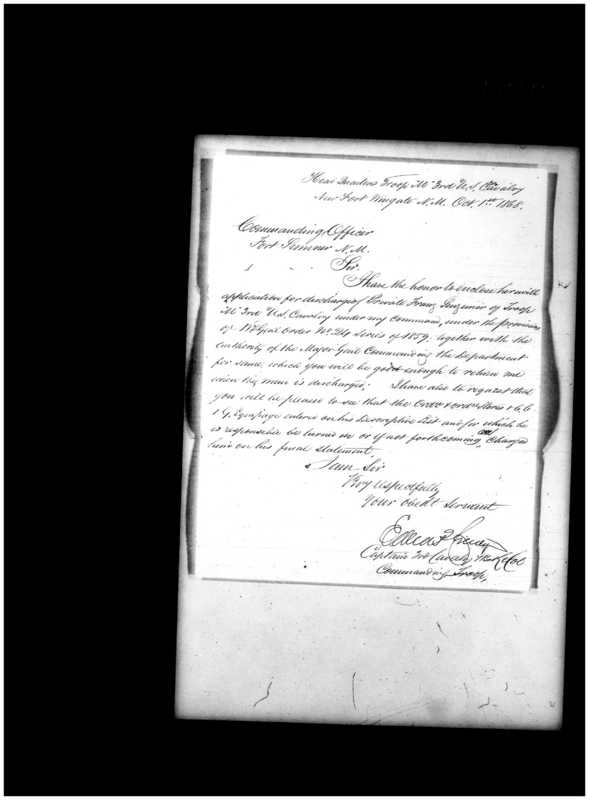 Head Quarters Troop "M" 3rd U.S. Cavalry
New Fort Wingate N.M. Oct. 1st 1868.
Commanding Officer
Fort Sumner N.M.
Sir.
I have the honor to enclose herewith
application for discharge of Private Franz of Troop
"M" 3rd U.S. Cavalry under my command, under the provisions
of Genl Order No. 24 Series of 1859. together with the
authority of the Major Genl Commanding the Department
for same, which you will be good enough to return me
when the man is discharged. I have also to request that
you will be pleased to see that the Ord & ord Stores & C.C.
& G. Equipage entered on his Descriptive List and for which he
is responsible be turned in or if not forthcoming, charged
him on his final statement.
I am Sir
Very respectfully
Your obedt Servant
Captain 3rd Cavalry Bvt Lt Col
Commanding Troop,